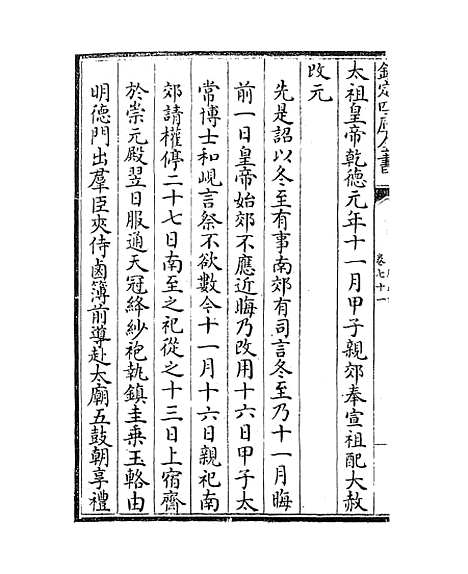 欽定四庫全書
卷七十一
太祖皇帝乾德元年十一月甲子親郊奉宣祖配大赦
改元
先是詔以冬至有事南郊有司言冬至乃十一月晦
前一日皇帝始郊不應近晦乃改用十六日甲子太
常博士和峴言祭不欲數今十一月十六日親祀南
郊請權停二十七日南至之祀從之十三日上宿齋
於崇元殿翌日服通天冠絳紗袍執鎮圭乗玉輅由
明德門出羣臣夾侍鹵簿前導赴太廟五鼓朝享禮